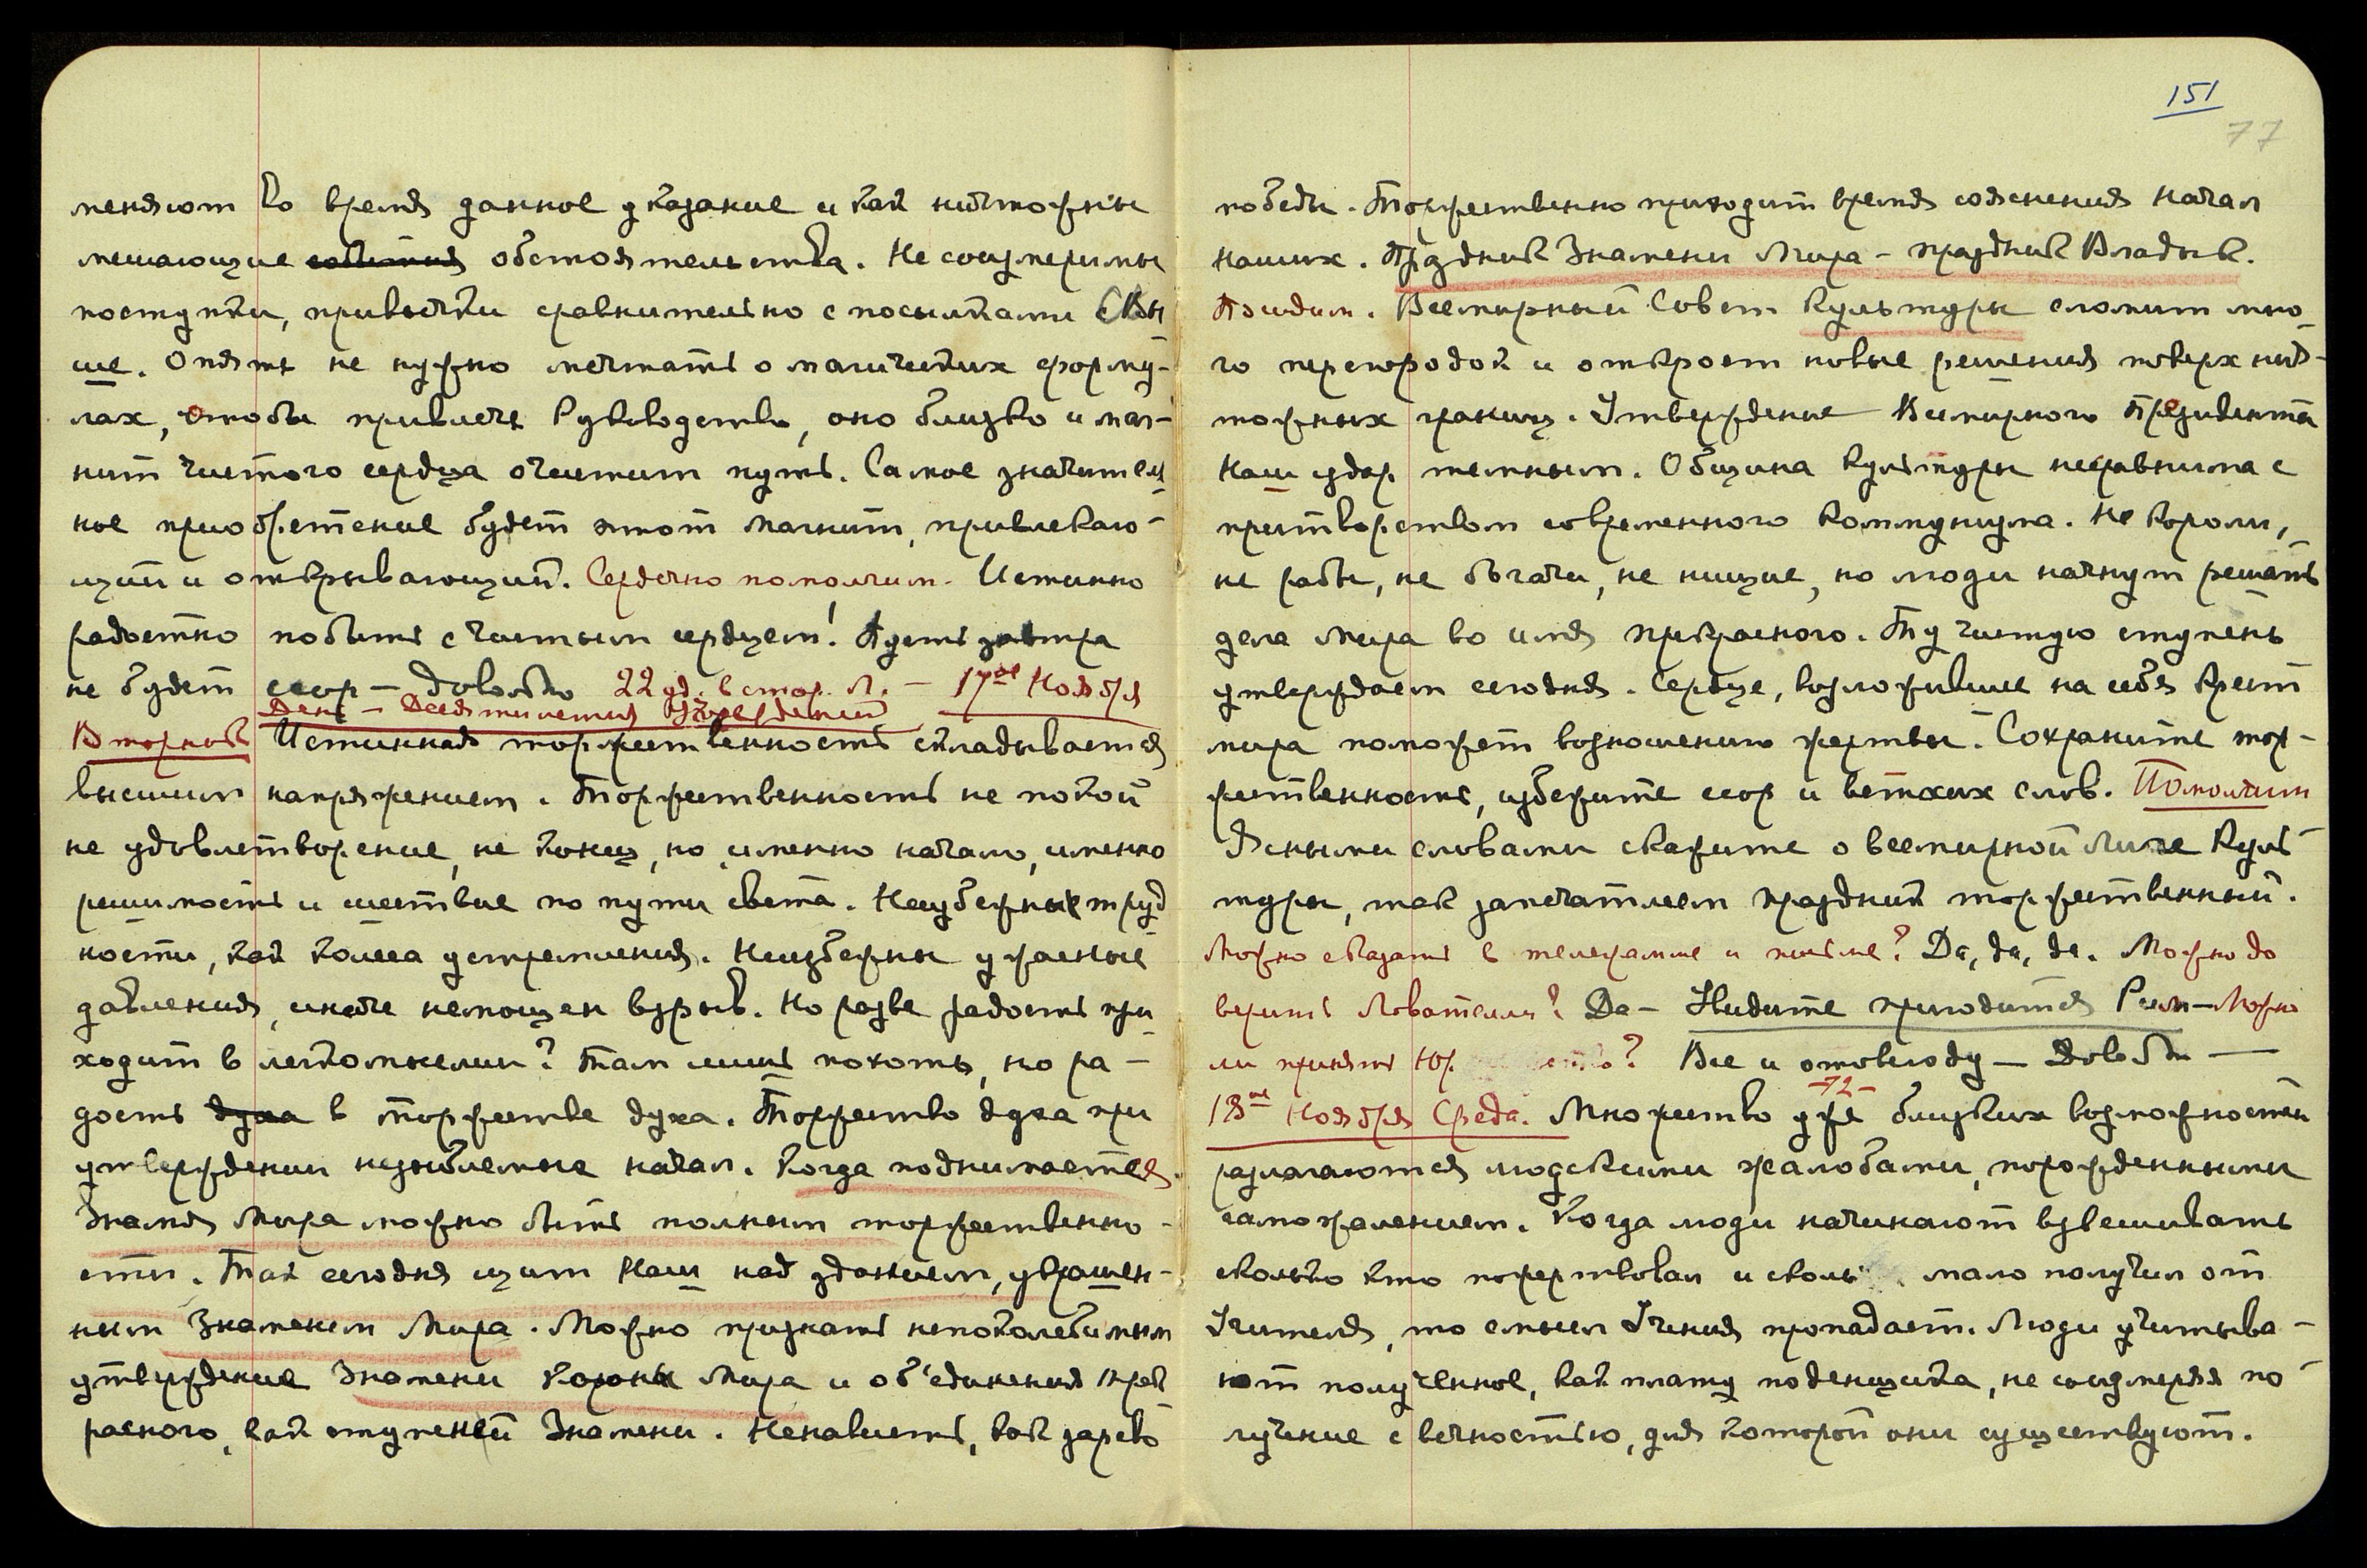 меняют во время данное указание и как ничтожны
мешающие события обстоятельства. Не соизмеримы
поступки, привычки сравнительно с посылками Свы
ше. Опять не нужно мечтать о магических форму-
лах, чтобы привлечь Руководство, оно близко и маг-
нит чистого сердца очистит путь. Самое значитель
ное приобретение будет этот магнит, привлекаю-
щий и открывающий. Сердечно помолчим. Истинно
радостно побыть с чистым сердцем! Пусть завтра
не будет ссор – Довольно 22 уд. в стор. Л. – 17ое Ноября
День – Десятилетия Учреждений
Вторник Истинная торжественность складывается
высшим напряжением. Торжественность не покой
не удовлетворение, не конец, но именно начало, именно
решимость и шествие по пути света. Неизбежны труд
ности, как колеса устремления. Неизбежны ужасные
давления, иначе немощен взрыв. Но разве радость при
ходит в легкомыслии? Там лишь похоть, но ра-
дость духа в торжестве духа. Торжество духа при
утверждении незыблемые начал. Когда поднимается
Знамя Мира можно быть полным торжественно-
сти. Так сегодня щит Наш над зданием, украшен-
ным Знаменем Мира. Можно признать непоколебимым
утверждение Знамени Короны Мира и об'единения прек
расного, как ступеней Знамени. Ненависть, как зарево
151
77
победы. Торжественно приходит время сояснения Начал
Наших. Праздник Знамени Мира – праздник Владык.
Придим. Всемирный Совет Культуры сломит мно-
го перегородок и откроет новые решения поверх нич-
тожных границ. Утверждение Всемирного Президента
Наш удар темным. Община Культуры несравнима с
притворством современного коммунизма. Не короли,
не рабы, не богачи, не нищие, но люди начнут решать
дела мира во имя прекрасного. Ту чистую ступень
утверждаем сегодня. Сердце, возложившее на себя крест
мира поможет возношению жертвы. Сохраните тор-
жественность, избежите ссор и ветхих слов. Помолчим
Ясными словами скажите о всемирной Лиге Куль
туры, так запечатлеем праздник торжественный.
Можно сказать в телеграмме и письме? Да, да, да. Можно до
верить Лователли? Да – Увидите пригодится Рим – Можно
ли принять Юр. ? Все и отовсюду – Довольно –
–12–
18ое Ноября Среда. Множество уже близких возможностей
разлагаются людскими жалобами, порожденными
саможалением. Когда люди начинают взвешивать
сколько кто пожертвовал и сколь мало получил от
Учителя, то смысл Учения пропадает. Люди учитыва-
ют полученное, как плату поденщика, не соизмеряя по
лучение с вечностью, для которой они существуют.